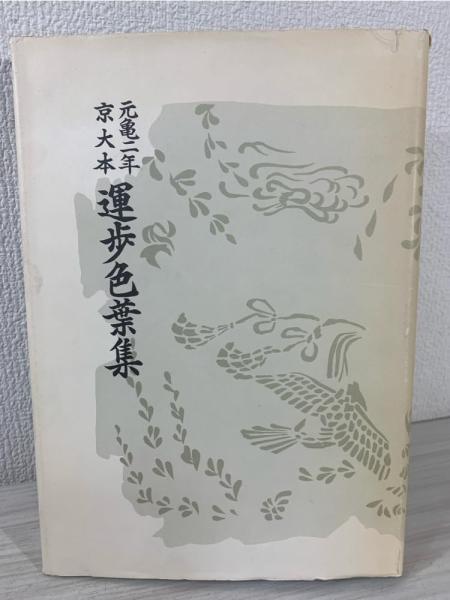 元亀二年
京大本
運歩色葉集